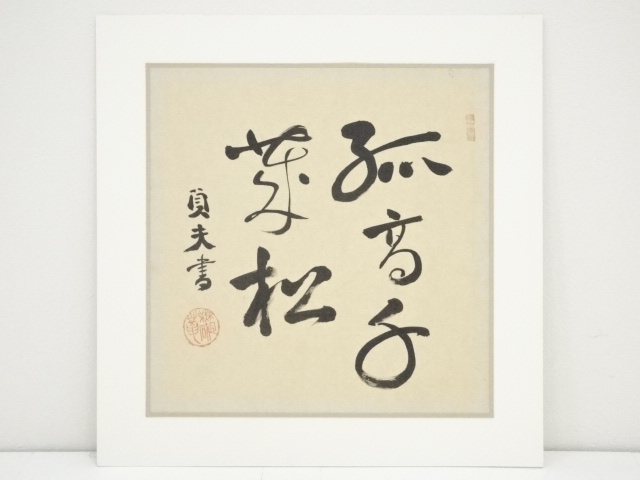 孤高千
歳松
貞夫書